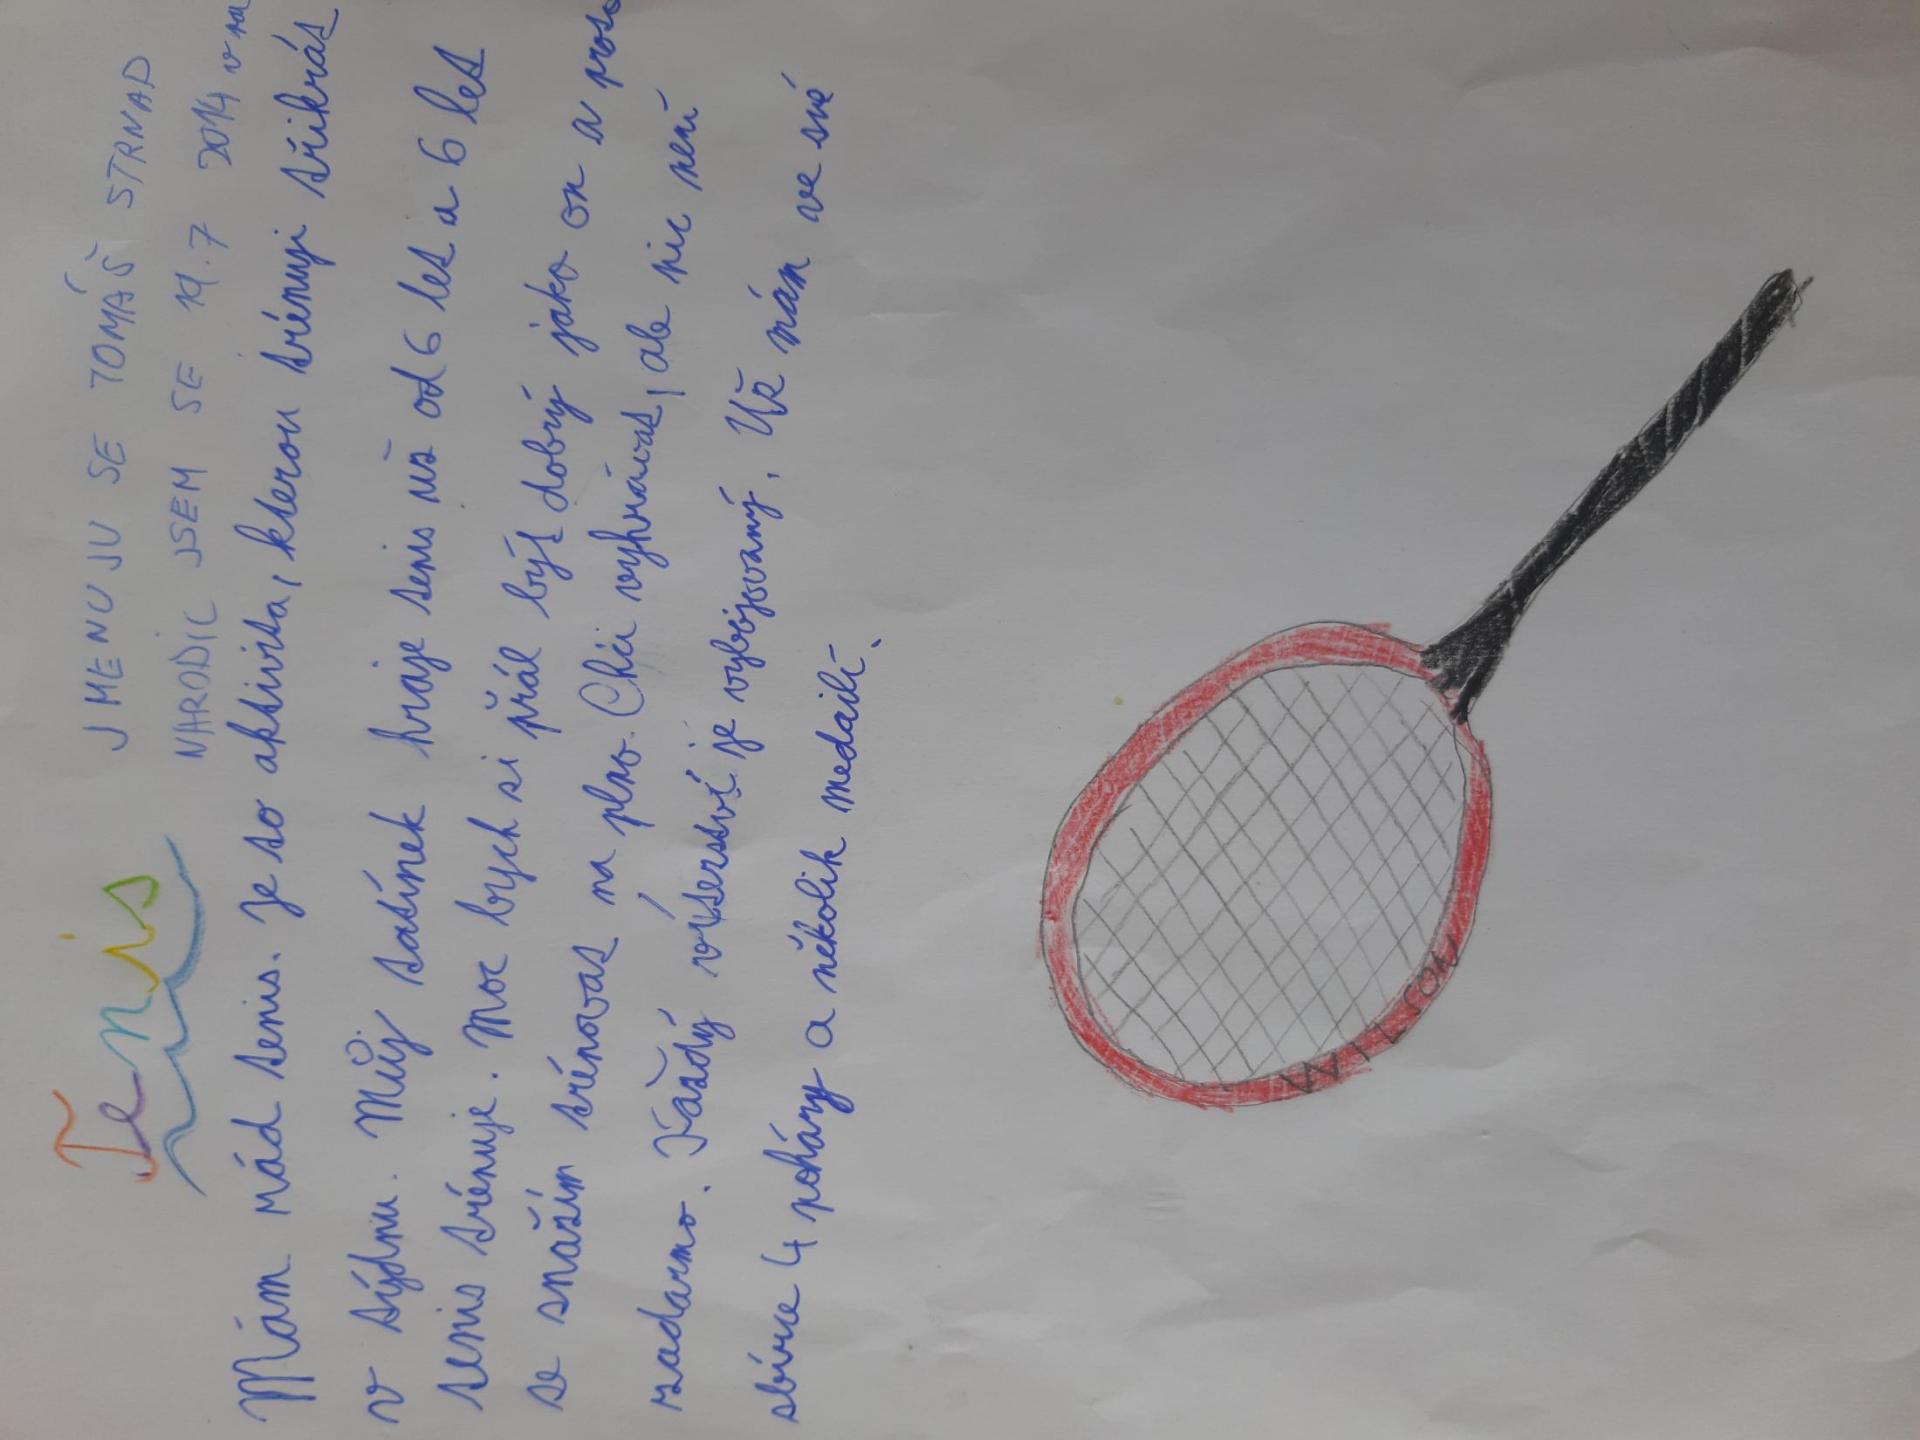 Tenis
JMENUJU SE TOMÁŠ STRNAD
NARODIL JSEM SE 19.7 2014 v
Mám rád tenis. Je to aktivita, kterou trénuji třikrát
v týdnu. Můj tatínek hraje tenis už od 6 let a 6 let
tenis trénuje. Moc bych si přál být dobrý jako on a proto
se snažím trénovat na plno. Chci vyhrávat, ale nic není
zadarmo. Každý vítězství je vybojovaný. Už mám ve své
sbírce 4 poháry a několik medailí.
WILSON